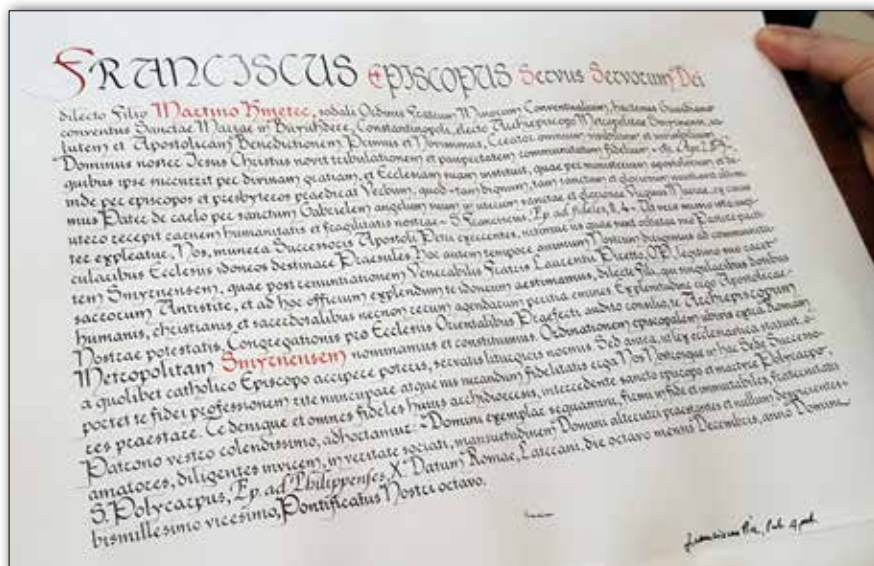 FRANCISCUS EPISCOPUS Servus Servorum Dei
dilecto Filio Martino Kmetec, sodali Ordinis Fratrum Minorum Conventualium, hactenus Guardiano
conventus Sanctae Mariae in Buyukdere, Constantinopoli, electo Archiepiscopo Metropolitae Smyrnensi, sa-
lutem et Apostolicam Benedictionem. Primus et Novissimus, Creator omnium visibilium et invisibilium,
Dominus noster Iesus Christus novit tribulationem et paupertatem communitatum fidelium
quibus ipse succurrit per divinam gratiam, et Ecclesiam suam instituit, quae per ministerium apostolorum et de-
inde per episcopos et presbyteros praedicat Verbum, quod "tam dignum, tam sanctum et gloriosum nuntiavit altissi-
mus Pater de caelo per sanctum Gabrielem angelum suum in uterum sanctae et gloriosae Virginis Mariae, ex cuius
utero recepit carnem humanitatis et fragilitatis nostrae" S. Franciscus, Ep. ad fideles, II, 4. Ut vero munus
ter expleatur, Nos, munera Successoris Apostoli Petri exercentes, nitimur
cularibus Ecclesiis idoneos destinare Praesules. Hoc autem tempore animum Nostrum dirigimus ad communita-
tem Smyrnensem, quae post renuntiationem Venerabilis Fratris Laurentii Piretto, O.P., legitimo suo caret
sacrorum Antistite, et ad hoc officium explendum te idoneum aestimamus, dilecte fili, qui singularibus donibus
humanis, christianis et sacerdotalibus necnon rerum agendarum peritia emines. Ex plenitudine ergo Apostolicae
Nostrae potestatis, Congregationis pro Ecclesiis Orientalibus Praefecti audito consilio, te Archiepiscopum
Metropolitam Smyrnensem nominamus et constituimus. Ordinationem episcopalem alibi extra Romam
a quolibet catholico Episcopo accipere poteris, servatis liturgicis normis. Sed antea, ut lex ecclesiastica statuit, o-
portet te fidei professionem rite nuncupare atque ius iurandum fidelitatis erga Nos Nostrosque in hac Sede Successo-
res praestare. Te denique et omnes fideles huius archidioecesis, intercedente sancto episcopo et martyre Polycarpo,
Patrono vestro colendissimo, adhortamur: "Domini exemplar sequamini, firmi in fide et immutabiles, fraternitatis
amatores, diligentes invicem, in veritate sociati, mansuetudinem Domini alterutri praestantes et nullum despicientes"
S. Polycarpus, Ep. ad Philippenses, X. Datum Romae, Laterani, die octavo mensis Decembris, anno Domini
bismillesimo vicesimo, Pontificatus Nostri octavo.
Franciscus